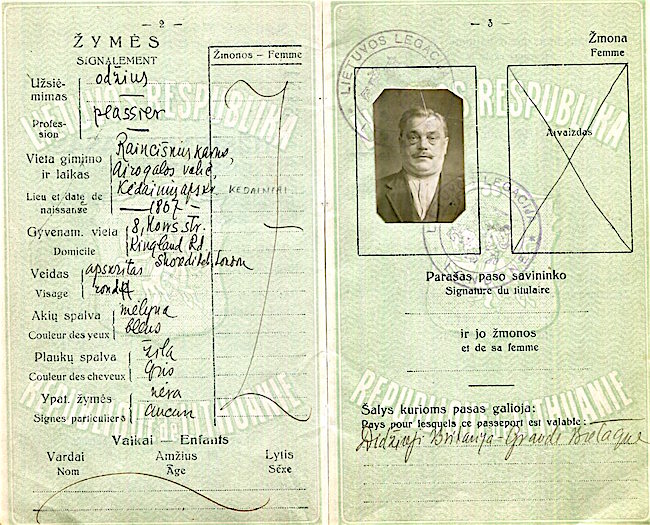 — 2 —
ŽYMĖS
SIGNALEMENT
Žmonos - Femme
Užsiė-
mimas
odžius
Profes-
sion
peassier
Vieta gimimo
ir laikas
Lieu et date de
naissance
kaimo,
Airogalos valšč.
Kėdainių apskr.
KEDAINIAI
— 1867 —
Gyvenam. vieta
Domicile
8,
Kingland Rd.
Shoreditch, London
Veidas
apskritas
Visage
rond
Akių spalva
mėlyna
Couleur des yeux
bleus
Plaukų spalva
žila
Couleur des cheveux
Gris
Ypat. žymės
nėra
Signes particuliers
Aucun
Vaikai — Enfants
Vardai
Amžius
Lytis
Nom
Âge
Sėxe
— 3 —
Žmona
Femme
Atvaizdas
LIETUVOS
Parašas paso savininko
Signature du titulaire
ir jo žmonos
et de sa femme
Šalys kurioms pasas galioja:
Pays pour lesquels ce passeport est valable:
Didžioji Britanija - Grande Bretagne
LIETUVOS RESPUBLIKA
REPUBLIQUE de LITHUANIE